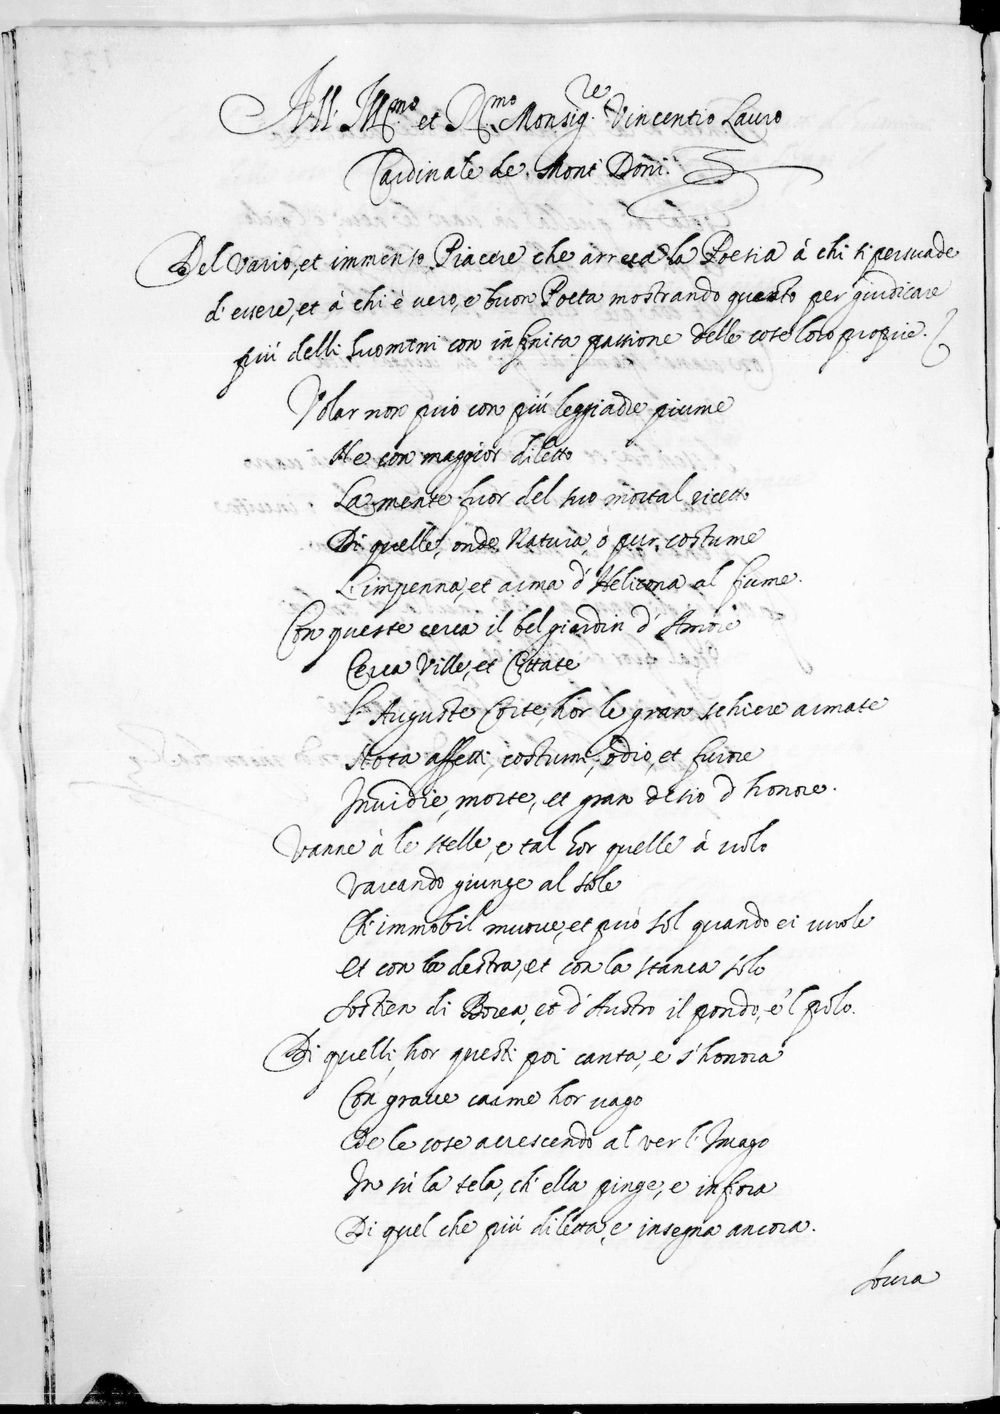 All' Ill.mo et R.mo Monsig.re Vincentio Lauro
Cardinale de Mont Doui.
Del vario, et immenso Piacere che arreca la Poesia à chi si persuade
d'essere, et à chi è vero, e buon Poeta mostrando questo per giudicare
più delli huomini con infinita passione delle cose loro proprie.
Volar non può con più leggiadre piume
Ne con maggior diletto
La mente fuor del suo mortal ricetto
Di quelle, onde Natura, ò pur costume
L'impenna, et arma d'Helicona al fiume.
Con queste cerca il bel giardin d'Amore
Cerca Ville, et Cittate
L'Auguste Corte, hor le gran schiere armate
Nota affetti, costumi, odio, et furore
Invidie, morte, et gran desio d'honore.
Vanne à le stelle, e tal hor quelle à volo
Varcando giunge al sole
Ch'immobil muove, et può sol quando ei vuole
Et con la destra, et con la stanca solo
Sostien di Borea, et d'Austro il pondo, e'l polo.
Di quelli, hor questi poi canta, e s'honora
Con grave carme hor vago
De le cose accrescendo al ver l'Imago
In sù la tela, ch'ella pinge, e infiora
Di quel che più diletta, e insegna ancora.
Sovra